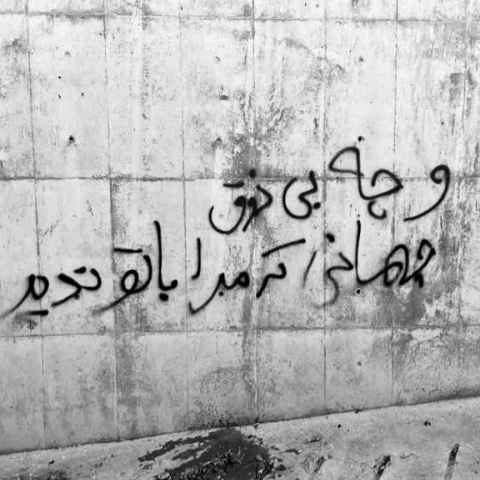 و چه بی ذوق
جهانی که مرا با تو ندید